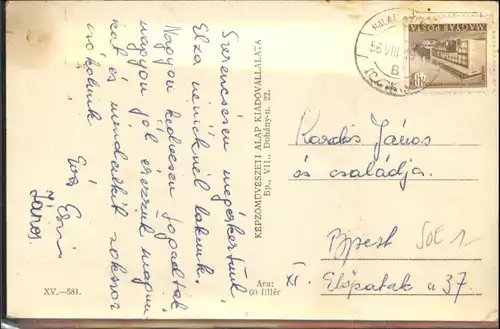 Szerencsésen megérkeztünk,
Elza néniéknél lakunk.
Nagyon kedvesen fogadtak
nagyon jól érezzük magun-
kat és mindenkit sokszor
csókolunk
Éva Ervin
János
KÉPZŐMŰVÉSZETI ALAP KIADÓVÁLLALATA
Bp., VII., Dohány-u. 22.
XV.—581.
Ára:
60 fillér
MAGYAR POSTA
56 VIII
B
Kardos János
és családja.
Bpest
XI.
Előpatak u 37.